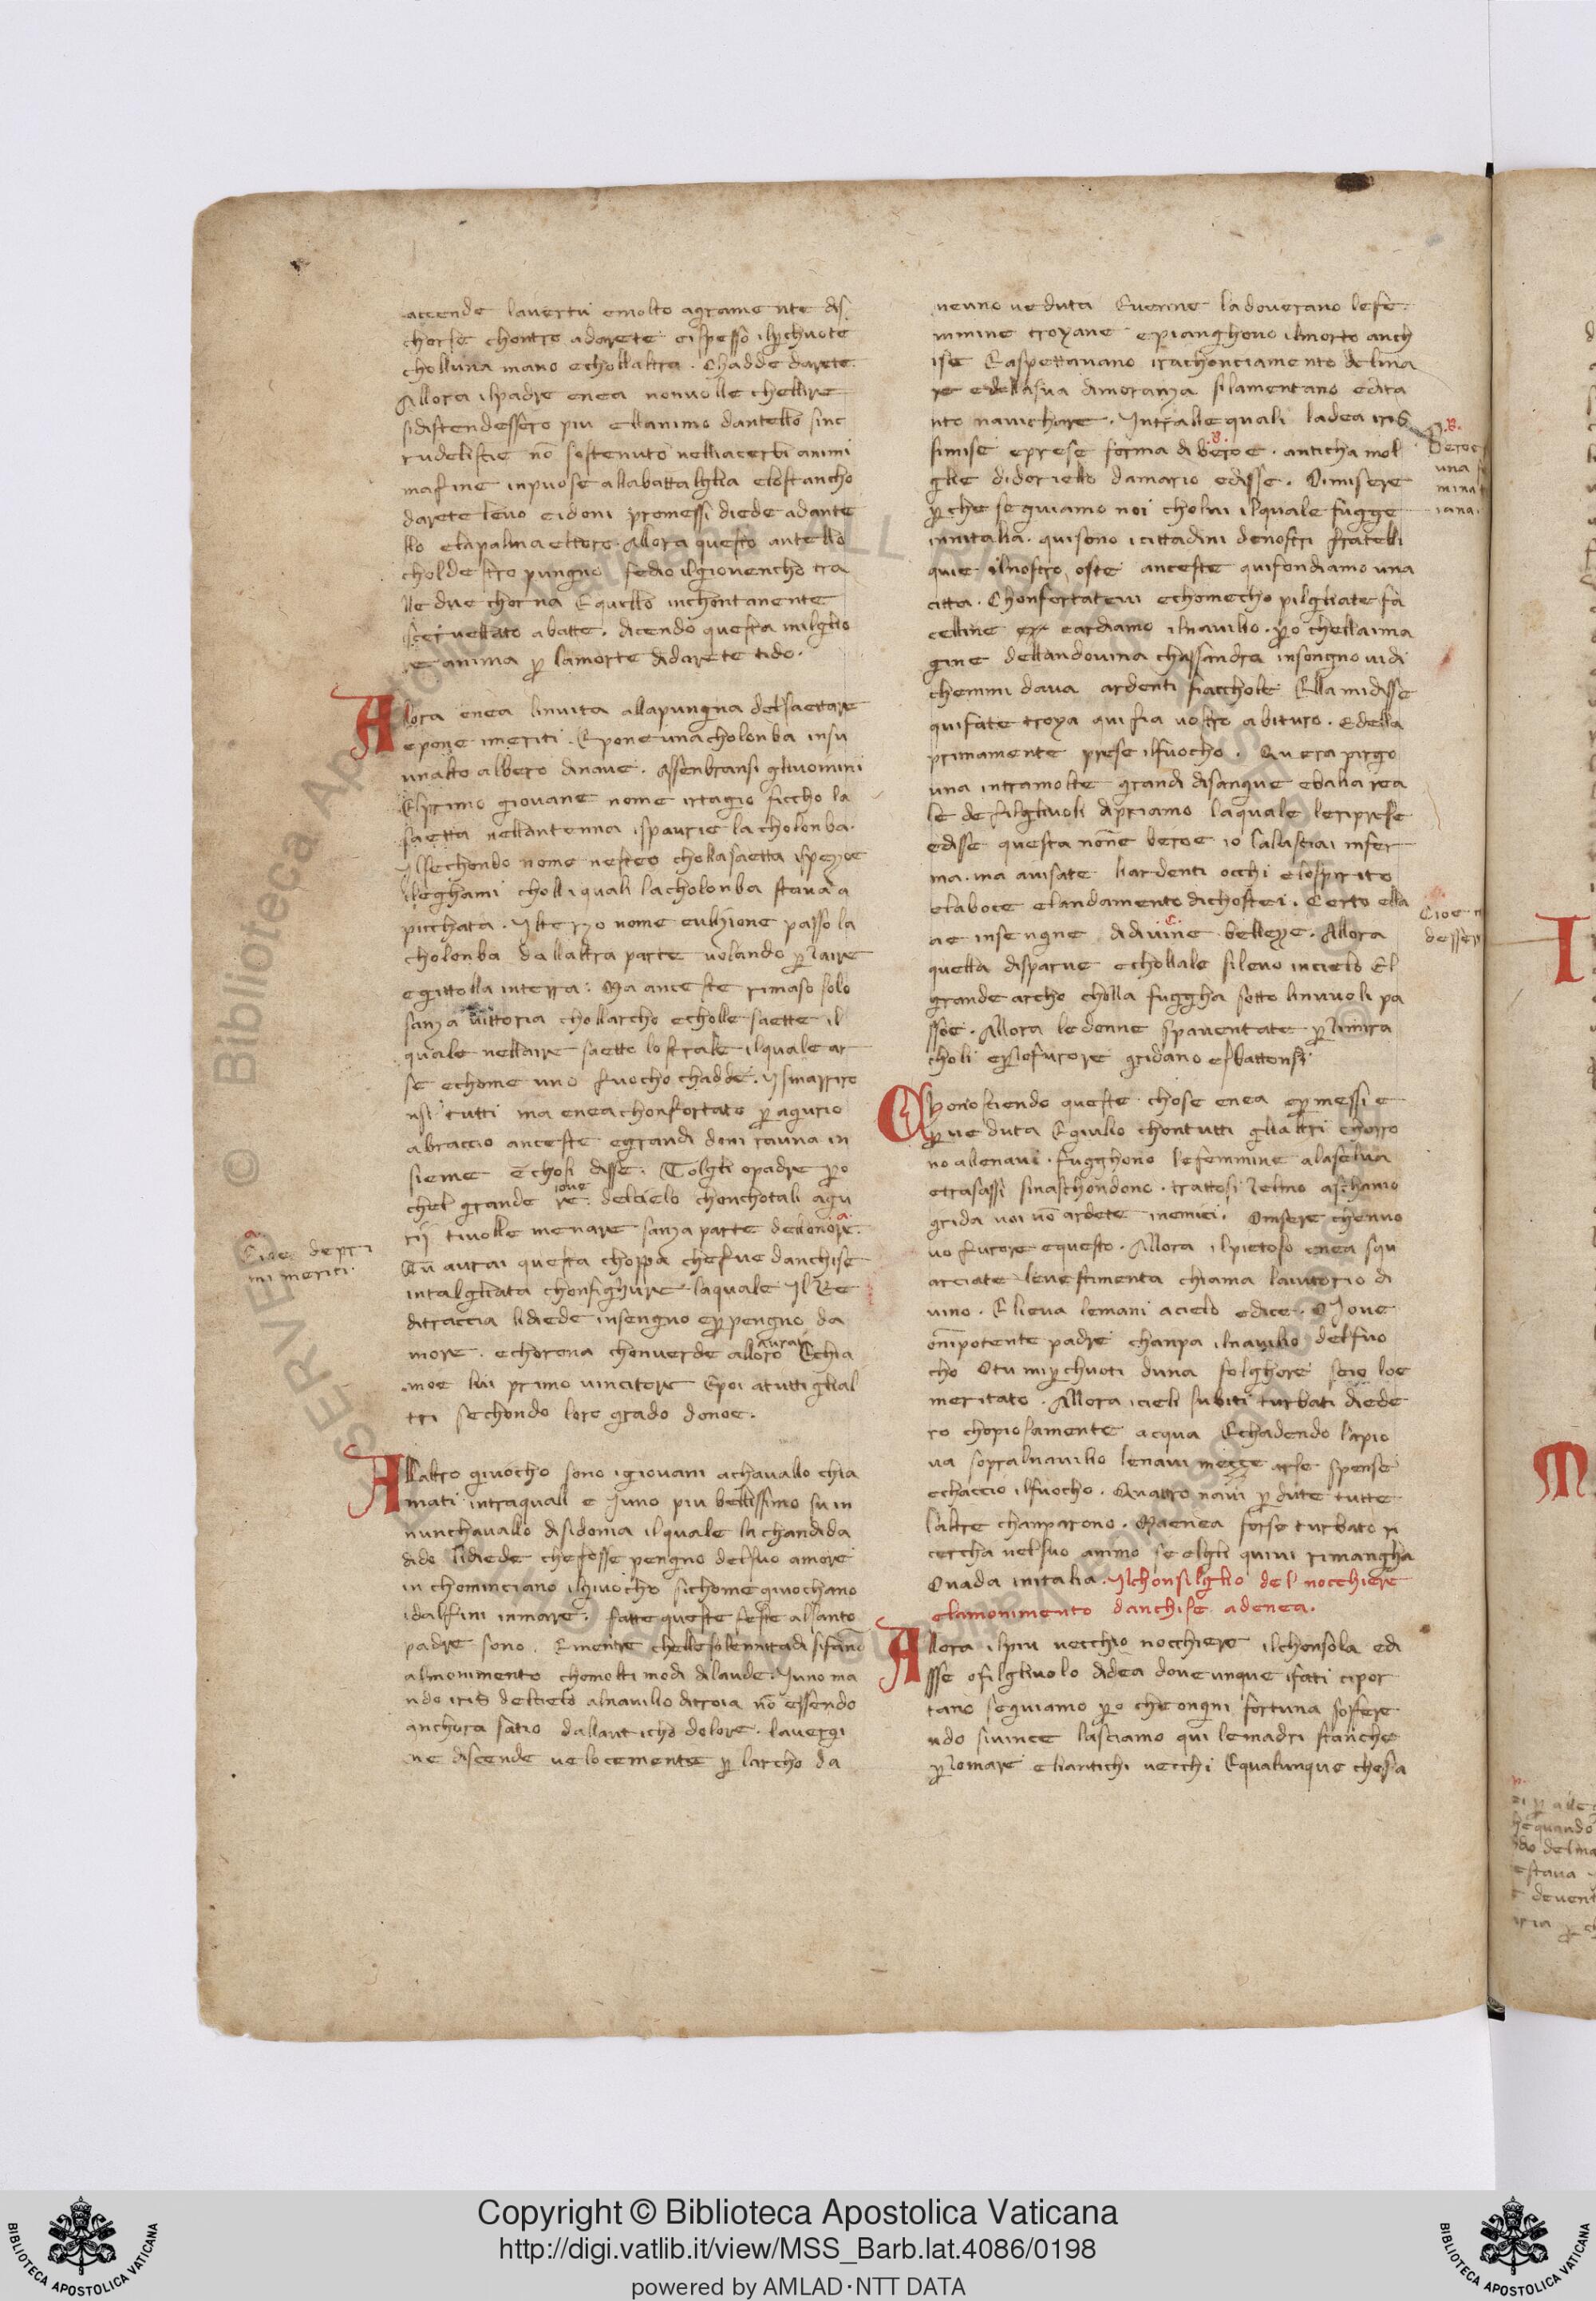 accende lauertu emolto agramente dis
chorse chontro adarete eispesso ilperchuote
cholluna mano echollaltra. Chadde darete.
Allora ilpadre enea nonuolle chellire
sidistendessero piu ellanimo dantello sinc
rudeliscie nō sostenuto nelliacerbi animi
mafine inpuose allabattalglia elostancho
darete leuo eidoni promessi diede adante
llo elapalma ettoro. Allora questo antello
choldestro pungno fedio ilgiouencho tra
lle due chorna Equello inchontanente
isceruellato abatte. dicendo questa milglio
re anima p lamorte didarete tido.
Allora enea linuita allapungna delsaettare
epone imeriti. Epone una cholonba insu
unalto albero dinaue. Assenbransi gliuomini
Elprimo giouane nome irtagio ficcho la
saetta nellantenna ispaurie lacholonba.
Ilsechondo nome nesteo chollasaetta ispezoe
ileghami cholli quali lacholonba staua a
picchata. Ilterzo nome eulizione passo la
cholonba dallaltra parte uolando p laire
egittolla interra: Ma anceste rimaso solo
sanza uittoria chollarcho echolle saette il
quale nellaire saetto lo strale ilquale ar
se echome uno fuocho chadde. Ismarriro
nsi tutti ma enea chonfortato p agurio
abraccio anceste egrandi doni rauna in
sieme echosi disse. Tolgli opadre po
chel grande re: delcielo chonchotali agu
ioue
rij tiuolle menare sanza parte dellonore.
a.
Cioe depri
mi meriti.
Tu aurai questa choppa chefue danchise
intalgliata chonfighure laquale Il Re
ditraccia lidiede insengno epp pengno da
more. echorona chonuerde alloro Echia
aurai
moe lui primo uincitore Epoi atutti glial
tri sechondo loro grado donoe.
Allaltro giuocho sono igiouani achauallo chia
mati intraquali e Iuno piu bellissimo su in
nunchauallo disidonia ilquale la chandida
dido lidiede chefosse pengno delsuo amore
in chominciano ilgiuocho sichome giuochano
idalfini inmare. fatte queste feste alsanto
padre sono. Ementre chelle solennitadi sifāno
almonimento chomolti modi dilaude. Iuno ma
ndo iris delcielo alnauilio ditroia nō essendo
anchora satio dallanticho dolore. lauergi
ne discende uelocemente p larcho da
neuno ueduta Euenne ladouerano lefe
mmine troyane epianghono ilmorto anch
ise Easpettauano irachonciamento delma
re edellasua dimoranza silamentano edita
nto nauichare. Intralle quali ladea iris
simise eprese forma di beroe. anticha mol
.B.
glie didoriello damario edisse. Omisere
pche seguiamo noi cholui ilquale fugge
initalia. quisono icittadini denostri fratelli
quie ilnostro oste anceste quifondiamo una
citta. Chonfortateui echomecho pilgliate fa
celline eardiamo ilnauilio. po chellaima
gine dellandouina chassandra insongno uidi
chemmi daua ardenti fiacchole Ella midisse
quifate troya qui fia uostro abituro. Edella
primamente prese ilfuocho. Quera pirgo
una intramolte grandi disangue ebalia rea
le de filgliuoli dipriamo laquale leriprese
edisse questa nōne beroe io lalasciai infer
ma. ma auisate liardenti occhi elospirito
elaboce elandamento dichostei. Certo ella
ae insengne didiuine belleze. Allora
.C.
quella disparue echollale sileuo incielo El
grande archo cholla fuggha sotto linuuoli pa
ssoe. Allora ledonne spauentate p limira
choli eplofurore gridano esbattonsi
.B.
Beroe
una
Cioe
Chonosciendo queste chose enea epmessi e
pueduta Eguilio chontutti glialtri chorro
no allenaui. fugghono lefemmine alaselua
etrasassi sinaschondono. trattosi lelmo aschanio
grida uoi nō ardete inemici. Omisere chenuo
uo furore equesto. Allora ilpietoso enea squ
arciate leuestimenta chiama laiutorio di
uino. Elieua lemani acielo edice. O Ioue
onipotente padre chanpa ilnauilio delfuo
cho Otu mi pchuoti duna folghore seio loe
meritato. Allora icieli subiti turbati diede
ro chopiosamente acqua Echadendo lapio
ua sopralnauilio lenaui mezze arse spense
echaccio ilfuocho. Quattro naui pdute tutte
laltre chanparono. Maenea forse turbato ri
cercha nelsuo animo se elgli quiui rimangha
Ouada initalia. Ilchonsilglio del nocchiere
elamonimento danchise adenea.
Allora ilpiu uecchio nocchiere ilchonsola edi
sse ofilgliuolo didea doueunque ifati cipor
tano seguiamo po che ongni fortuna soffere
ndo siuince lasciamo qui lemadri stanche
p lomare eliantichi uecchi Equalunque chosa
© Biblioteca Apostolica Vaticana ALL RIGHTS RESERVED
Copyright © Biblioteca Apostolica Vaticana
http://digi.vatlib.it/view/MSS_Barb.lat.4086/0198
powered by AMLAD·NTT DATA
BIBLIOTECA APOSTOLICA VATICANA
BIBLIOTECA APOSTOLICA VATICANA